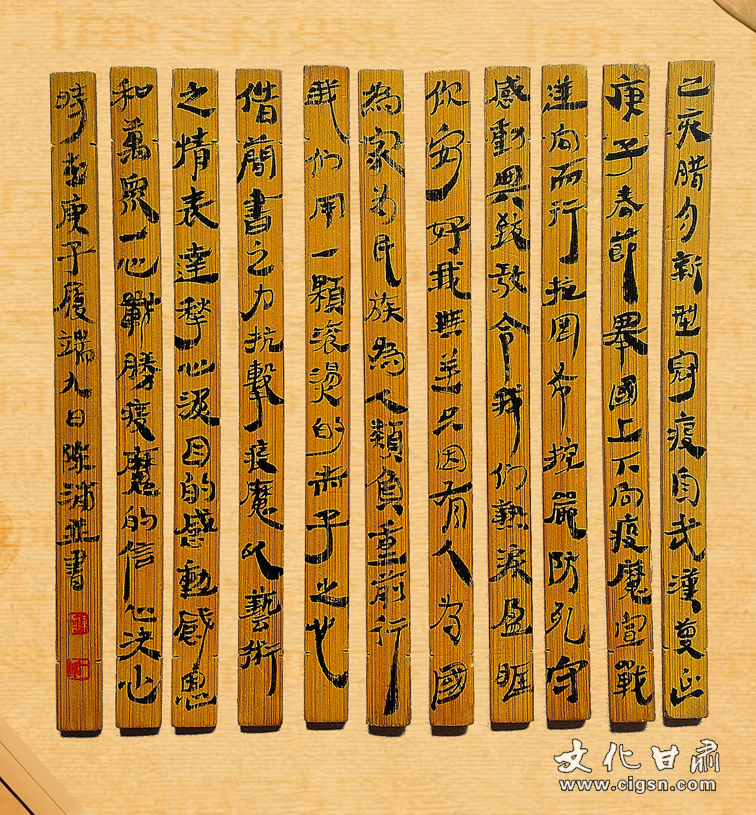 己亥腊月新型冠疫自武漢蔓延
庚子春節舉國上下向疫魔宣戰
逆向而行拉网布控嚴防死守
感動與致敬令我们熱淚盈眶
你安好我無恙只因有人为國
為家为民族為人類負重前行
我们用一顆滚燙的赤子之心
借簡書之力抗擊疫魔以藝術
之情表達揪心淚目的感動感恩
和萬眾一心戰勝疫魔的信心决心
時在庚子履端九日陳浦並書
文化甘肃
www.cigsn.com